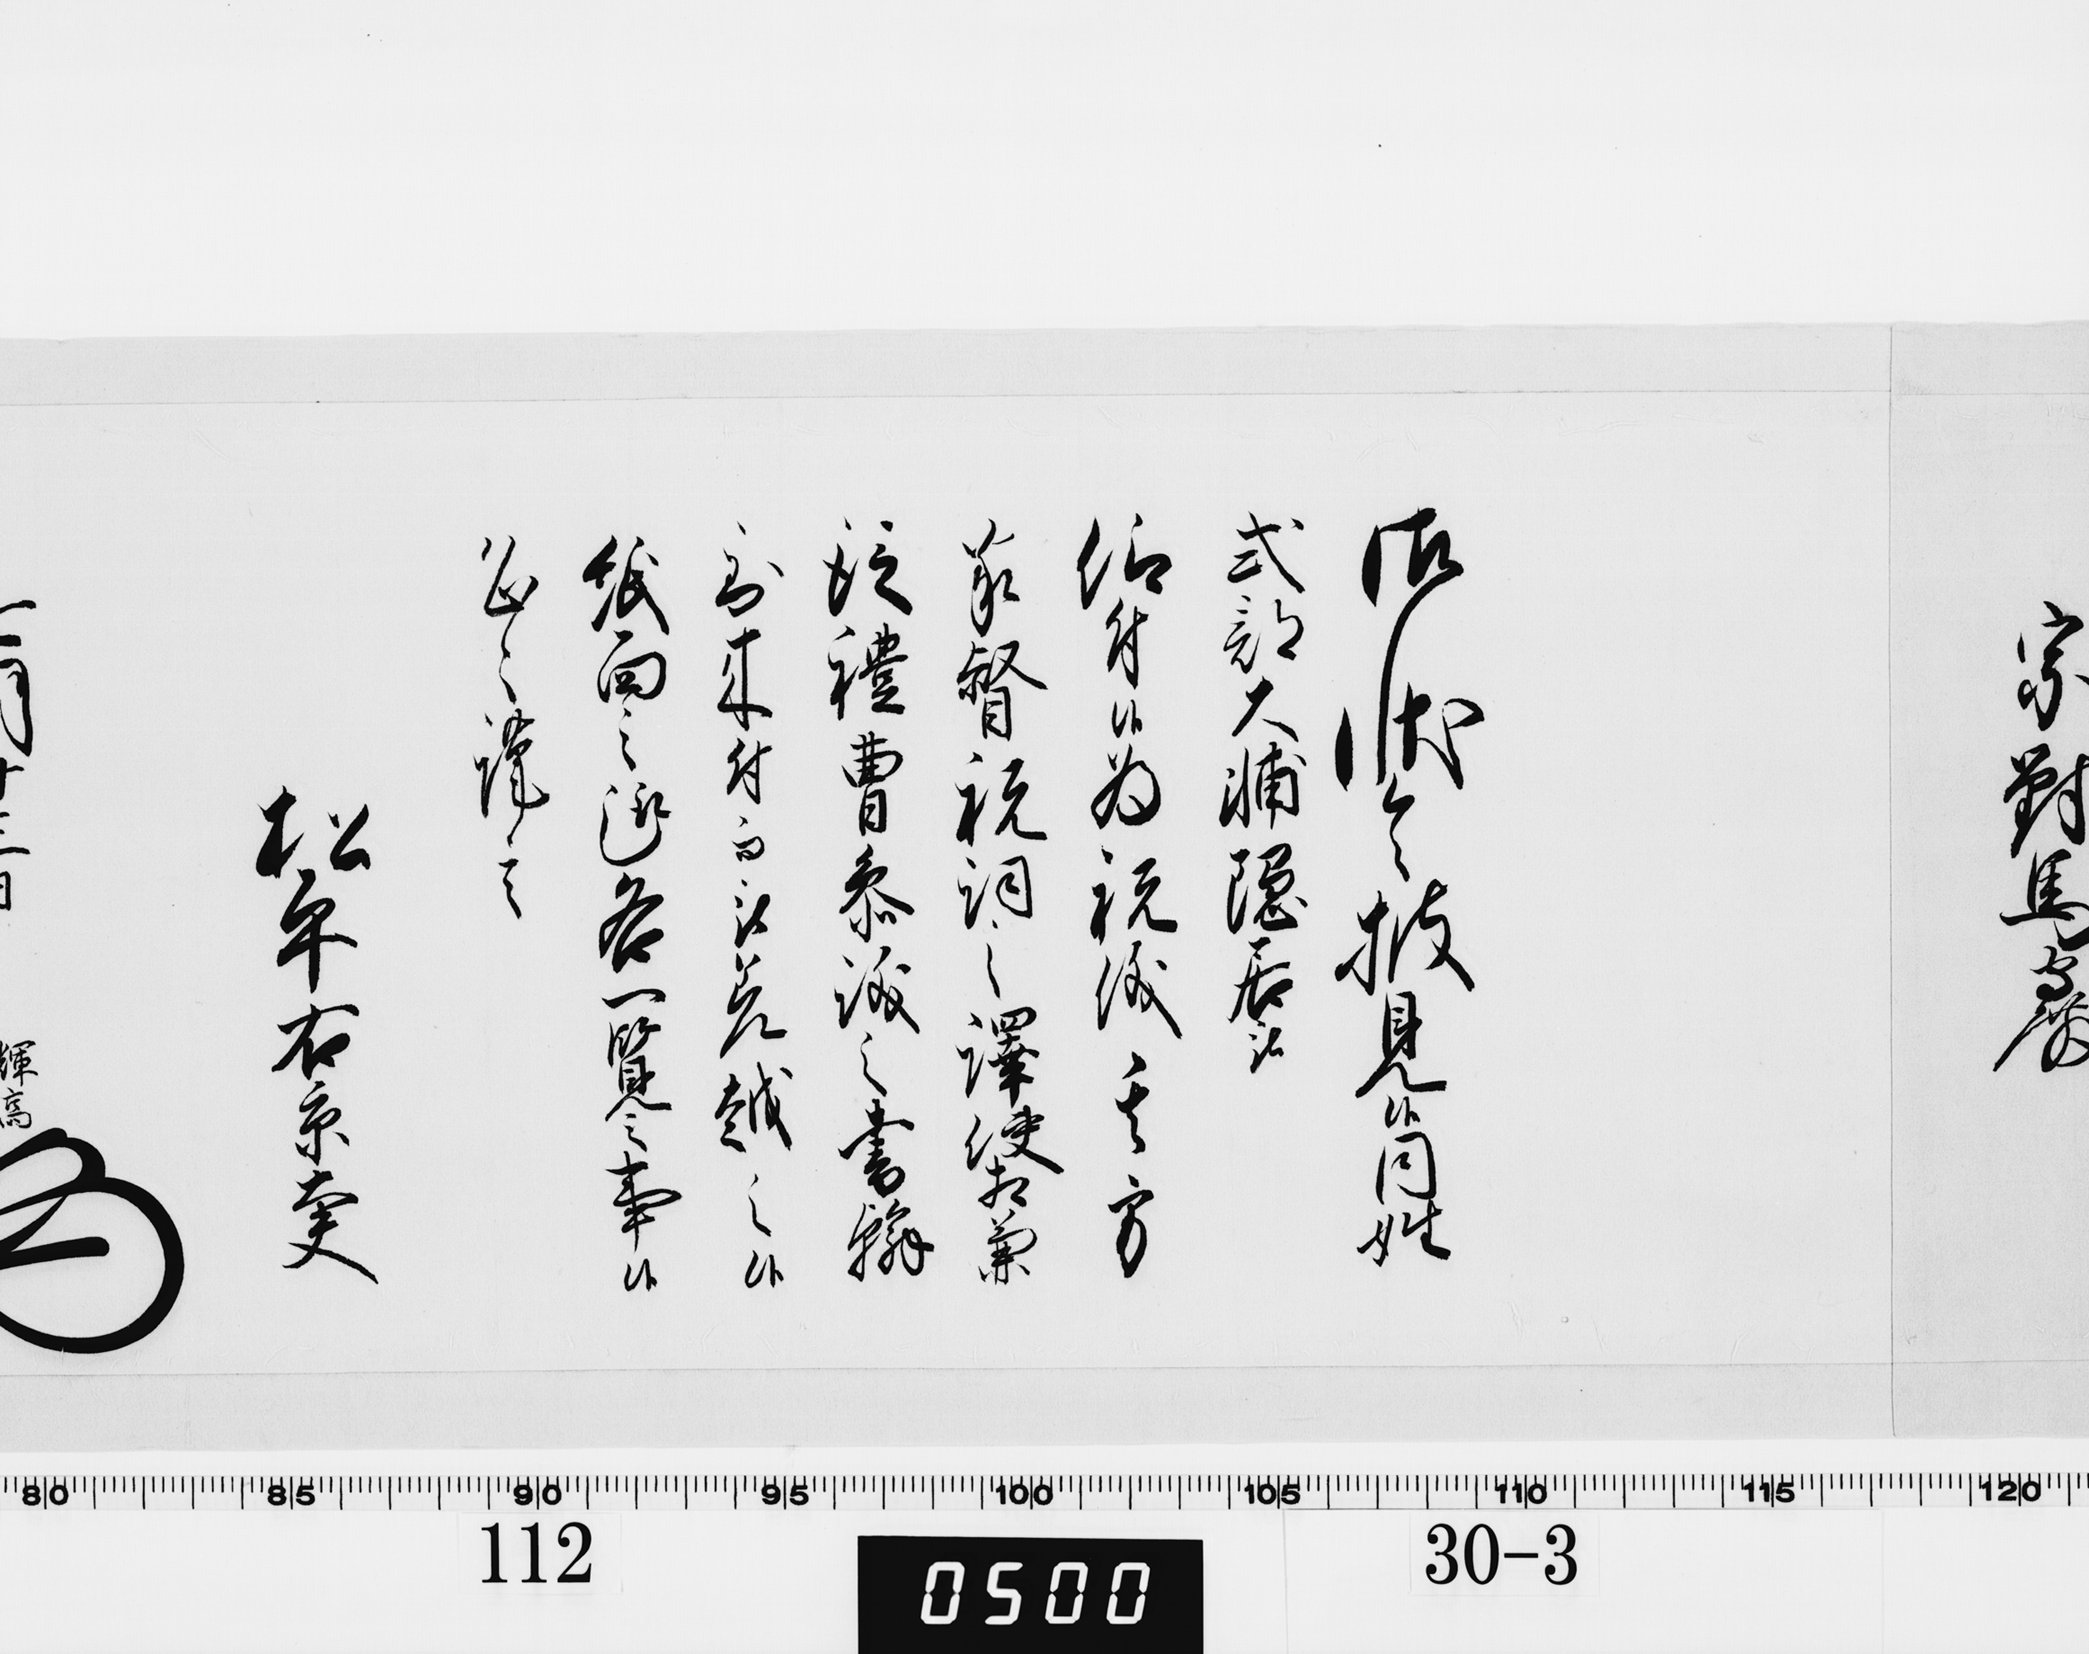 宗對馬守殿
御状令披見候同姓
式部大輔隠居被
仰付候為祝儀其方
家督祝詞之譯使相兼
従禮曹参議之書翰
到来付而被差越之候
紙面之趣各一覧之事候
恐々謹言
松平右京大夫
二月十三日 輝高
80 85 90 95 100 105 110 115 120
112 0500 30-3